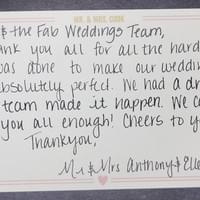 MR. & MRS. COOK
& the Fab Weddings Team,
ank you all for all the hard
was done to make our weddin
absolutely perfect. We had a dr
team made it happen. We ca
you all enough! Cheers to y
Thankyou,
Mr & Mrs Anthony & Elle